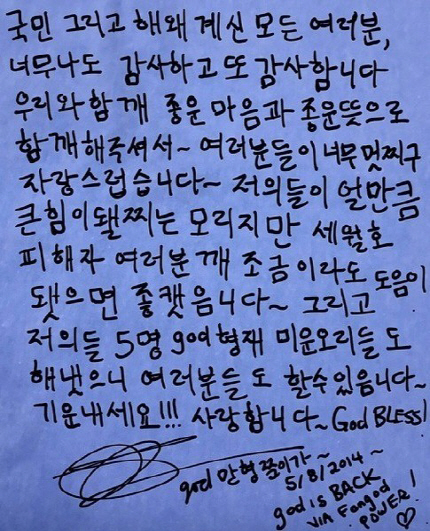 국민 그리고 해왜 계신 모든 여러분,
너무나도 감사하고 또 감사합니다
우리와 함깨 좋운 마음과 좋운뜻으로
함깨해주셔서~ 여러분들이 너무 멋찌구
자랑스럽습니다~ 저의들이 얼만큼
큰힘이 됄찌는 모리지만 세월호
피해자 여러분깨 조금이라도 도음이
됏으면 좋캣음니다~ 그리고
저의들 5명 god형재 미운오리들도
해냇으니 여러분들도 할수있음니다~
기운내세요!!! 사랑합니다~ God BLESS!
god 만형쭌이가~
5/8/2014 ~
god is BACK
VIA Fangod
POWER!
♡